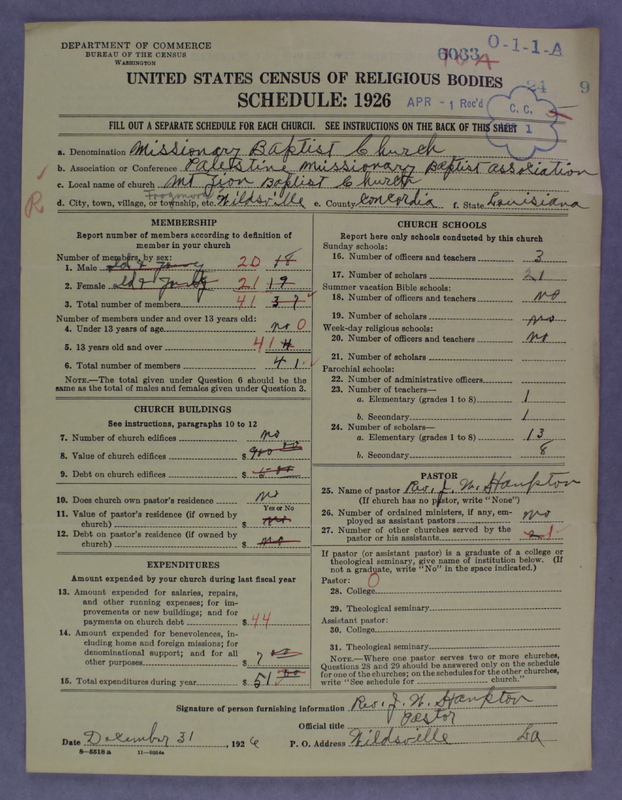 DEPARTMENT OF COMMERCE
BUREAU OF THE CENSUS
WASHINGTON
6083 0-1-1-A
UNITED STATES CENSUS OF RELIGIOUS BODIES
SCHEDULE: 1926
APR - 1 Rec'd
C. C.
1
9
FILL OUT A SEPARATE SCHEDULE FOR EACH CHURCH. SEE INSTRUCTIONS ON THE BACK OF THIS SHEET
a. Denomination Missionary Baptist Church
b. Association or Conference Palestine Missionary Baptist Association
c. Local name of church Mt Zson Baptist Church
R
d. City, town, village, or township, etc. Wildsville e. County Concordia f. State Louisiana
MEMBERSHIP
Report number of members according to definition of
member in your church
Number of members, by sex:
1. Male 20 18
2. Female 21 19
3. Total number of members 41 37
Number of members under and over 13 years old:
4. Under 13 years of age no 0
5. 13 years old and over 41
6. Total number of members 41
NOTE.—The total given under Question 6 should be the
same as the total of males and females given under Question 3.
CHURCH BUILDINGS
See instructions, paragraphs 10 to 12
7. Number of church edifices no
8. Value of church edifices $
9. Debt on church edifices $
10. Does church own pastor's residence no
Yes or No
11. Value of pastor's residence (if owned by
church) $ no
12. Debt on pastor's residence (if owned by
church) $ no
EXPENDITURES
Amount expended by your church during last fiscal year
13. Amount expended for salaries, repairs,
and other running expenses; for im-
provements or new buildings; and for
payments on church debt $ 44
14. Amount expended for benevolences, in-
cluding home and foreign missions; for
denominational support; and for all
other purposes $ 7 00
15. Total expenditures during year $ 51 00
CHURCH SCHOOLS
Report here only schools conducted by this church
Sunday schools:
16. Number of officers and teachers 3
17. Number of scholars 21
Summer vacation Bible schools:
18. Number of officers and teachers no
19. Number of scholars no
Week-day religious schools:
20. Number of officers and teachers no
21. Number of scholars
Parochial schools:
22. Number of administrative officers
23. Number of teachers—
a. Elementary (grades 1 to 8) 1
b. Secondary 1
24. Number of scholars—
a. Elementary (grades 1 to 8) 13
b. Secondary 8
PASTOR
25. Name of pastor Rev. J. W. Hampton
(If church has no pastor, write "None")
26. Number of ordained ministers, if any, em-
ployed as assistant pastors no
27. Number of other churches served by the
pastor or his assistants 1
If pastor (or assistant pastor) is a graduate of a college or
theological seminary, give name of institution below. (If
not a graduate, write "No" in the space indicated.)
Pastor: 0
28. College
29. Theological seminary
Assistant pastor:
30. College
31. Theological seminary
NOTE.—Where one pastor serves two or more churches,
Questions 28 and 29 should be answered only on the schedule
for one of the churches; on the schedules for the other churches,
write "See schedule for church."
Signature of person furnishing information Rev. J. W. Hampton
Official title Pastor
Date December 31, 1926 P. O. Address Wildsville La
8-5518a 11-9204a